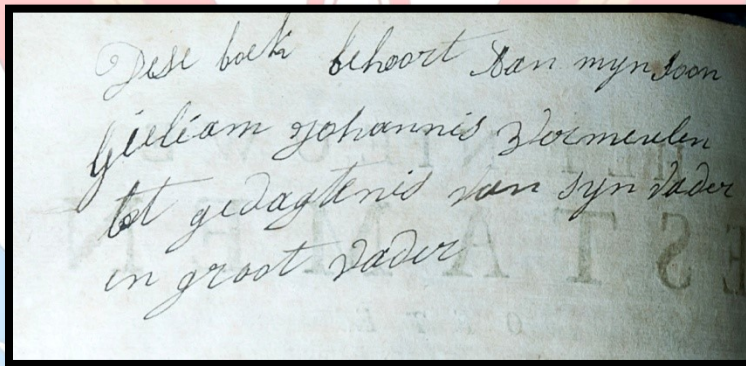 Dese boek behoort Aan myn soon
Gieliam Johannis Vermeulen
tot gedagtenis van syn vader
en groot vader